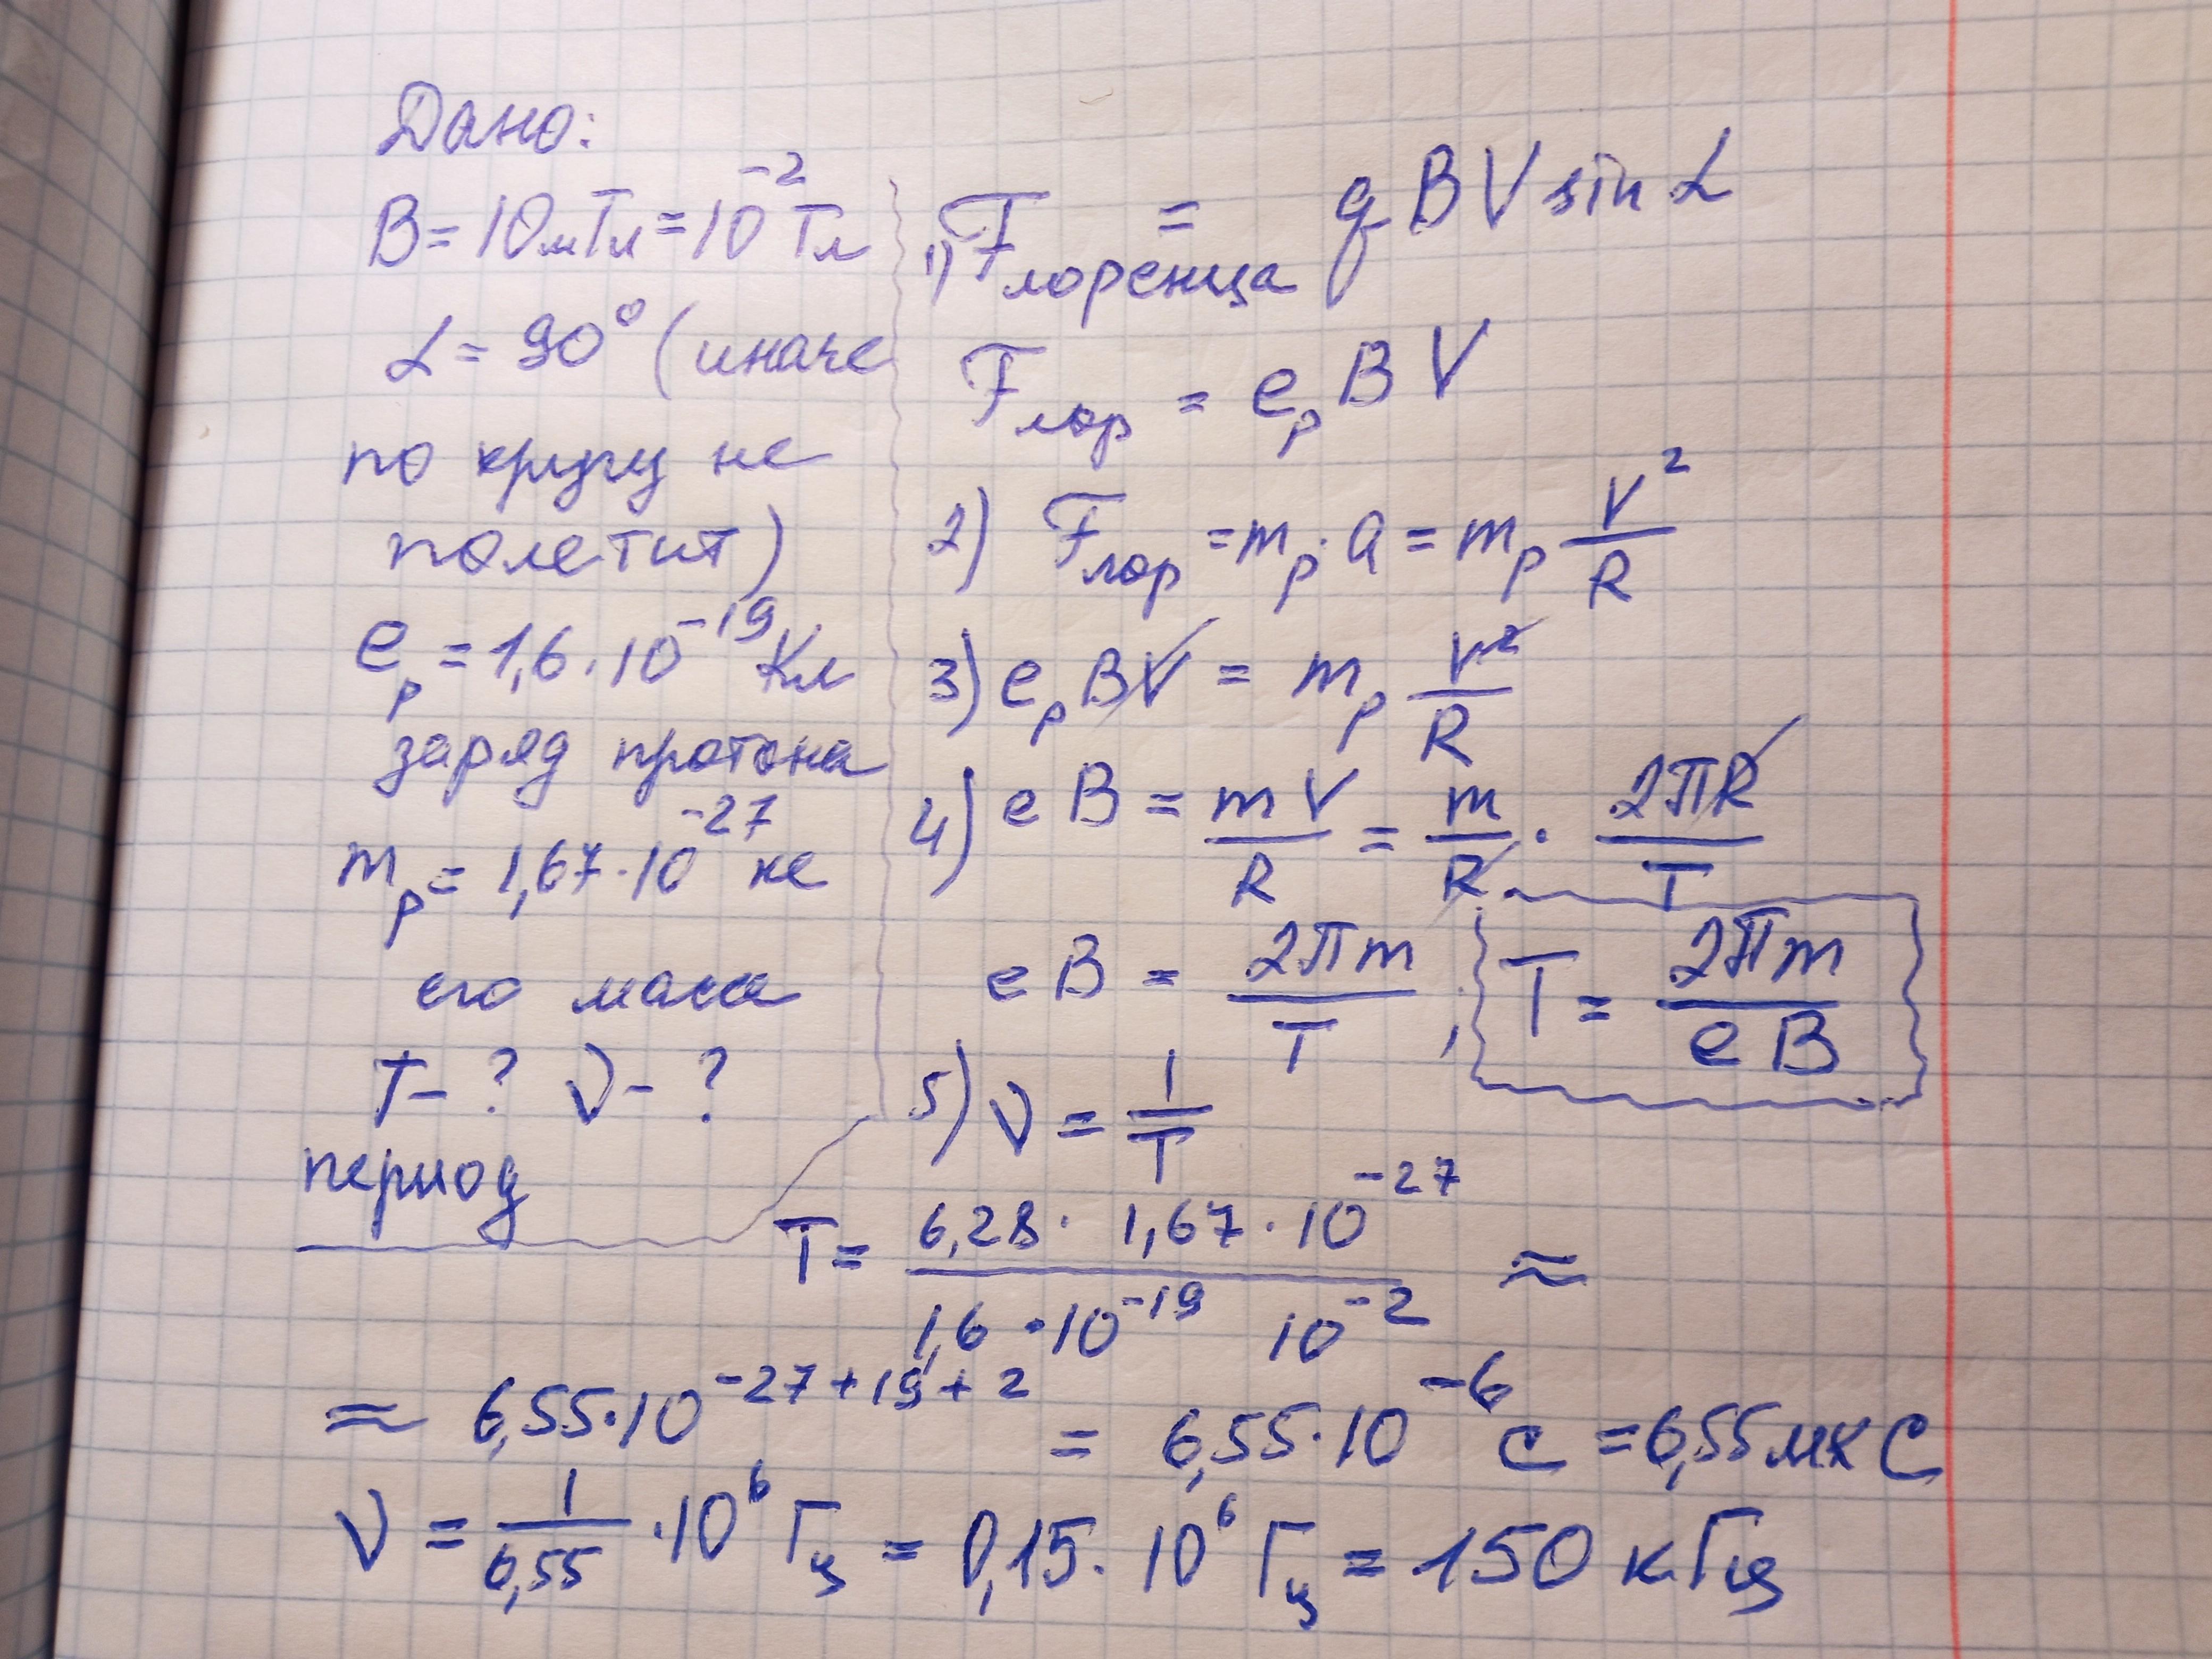 Дано:
B = 10мТл = 10⁻² Тл
α = 90° (иначе
по кругу не
полетит)
eₚ = 1,6 · 10⁻¹⁹ Кл
заряд протона
mₚ = 1,67 · 10⁻²⁷ кг
его масса
T - ? ν - ?
период
1) Fлоренца = qBV sin α
Fлор = eₚBV
2) Fлор = mₚ · a = mₚ V²/R
3) eₚBV = mₚ V²/R
4) eB = mV/R = m/R · 2πR/T
eB = 2πm/T, T = 2πm/eB
5) ν = 1/T
T = 6,28 · 1,67 · 10⁻²⁷/1,6 · 10⁻¹⁹ 10⁻² ≈
≈ 6,55 · 10⁻²⁷⁺¹⁹⁺² = 6,55 · 10⁻⁶ с = 6,55 мкс
ν = 1/6,55 · 10⁶ Гц = 0,15 · 10⁶ Гц = 150 кГц